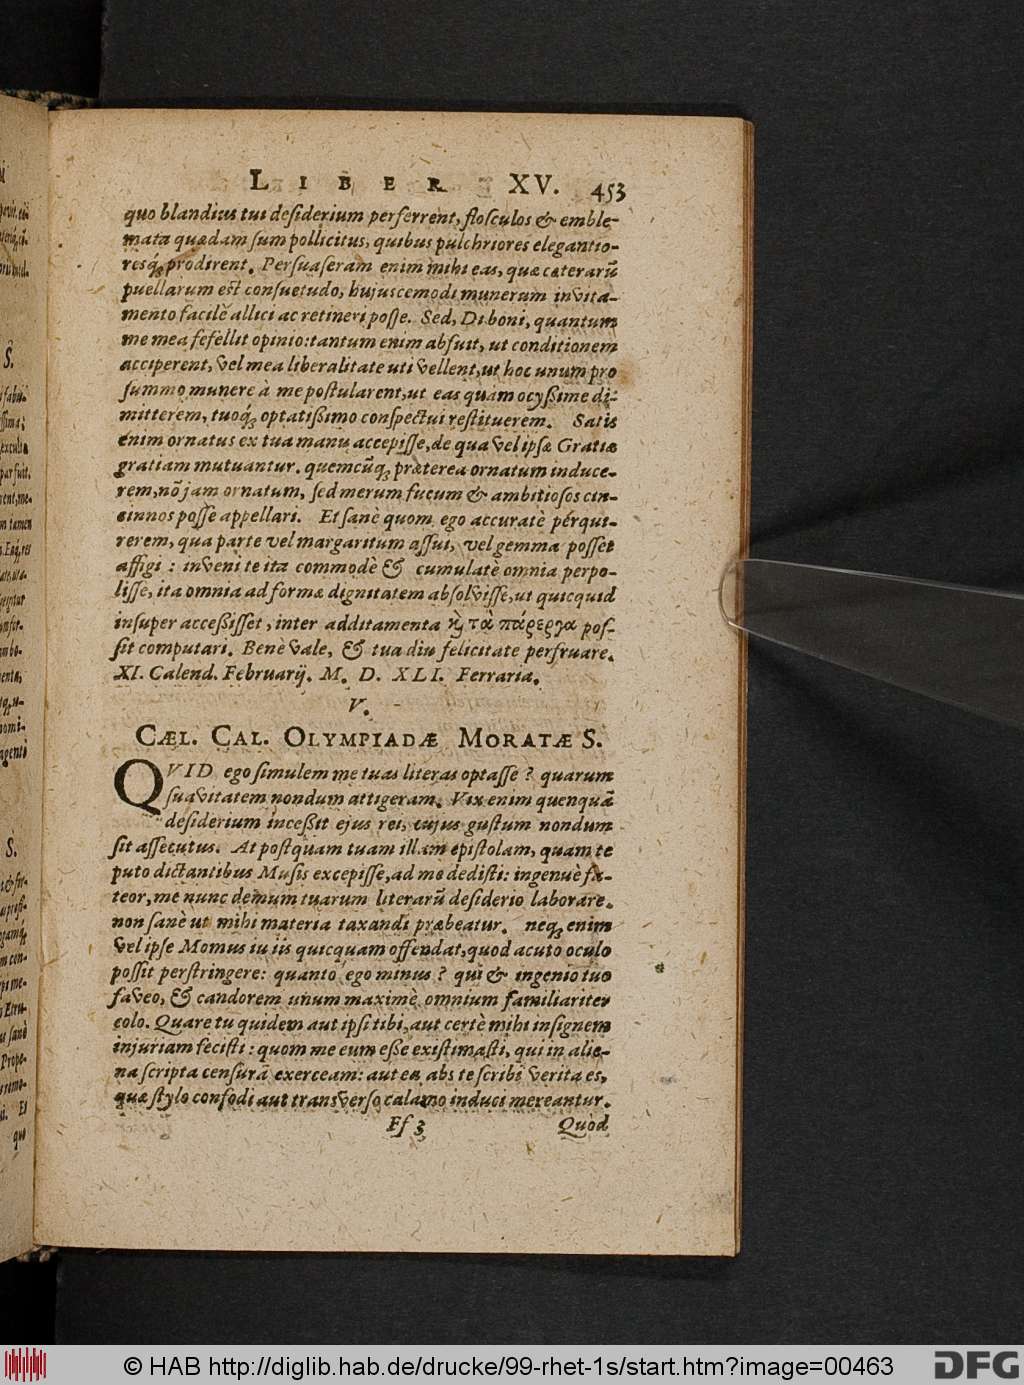 LIBER XV. 453
quo blandius tui desiderium perferrent, flosculos & emble-
mata quædam sum pollicitus, quibus pulchriores elegantio-
resq́; prodirent. Persuaseram enim mihi eas, quæ cæterarũ
puellarum est consuetudo, hujuscemodi munerum invita-
mento facilè allici ac retineri posse. Sed, Di boni, quantum
me mea fefellit opinio: tantum enim abfuit, ut conditionem
acciperent, vel mea liberalitate uti vellent, ut hoc unum pro
summo munere à me postularent, ut eas quàm ocyßime di-
mitterem, tuoq́; optatißimo conspectui restituerem. Satis
enim ornatus ex tua manu accepisse, de qua vel ipsæ Gratiæ
gratiam mutuantur. quemcũq; præterea ornatum induce-
rem, nõ jam ornatum, sed merum fucum & ambitiosos cin-
cinnos posse appellari. Et sanè quom ego accuratè pérqui-
rerem, qua parte vel margaritum assui, vel gemma posset
affigi: inveni te ita commodè & cumulatè omnia perpo-
lisse, ita omnia ad formæ dignitatem absolvisse, ut quicquid
insuper acceßisset, inter additamenta ϗ̀ τὰ πάρεργα pos-
sit computari. Benè vale, & tua diu felicitate perfruare.
XI. Calend. Februarij. M. D. XLI. Ferraria.
V.
CÆL. CAL. OLYMPIADÆ MORATÆ S.
QVID ego simulem me tuas literas optasse? quarum
suavitatem nondum attigeram. Vix enim quenquã
desiderium inceßit ejus rei, cujus gustum nondum
sit assecutus. At postquam tuam illam epistolam, quam te
puto dictantibus Musis excepisse, ad me dedisti: ingenuè fa-
teor, me nunc demum tuarum literarũ desiderio laborare.
non sanè ut mihi materia taxandi præbeatur. neq; enim
vel ipse Momus iu iis quicquam offendat, quod acuto oculo
possit perstringere: quantò ego minus? qui & ingenio tuo
faveo, & candorem unum maximè omnium familiariter
colo. Quare tu quidem aut ipsi tibi, aut certè mihi insignem
injuriam fecisti: quom me eum eße existimasti, qui in alie-
na scripta censurã exerceam: aut ea abs te scribi verita es,
quæ stylo confodi aut transverso calamo induci mereantur.
Ff 3 Quòd
© HAB http://diglib.hab.de/drucke/99-rhet-1s/start.htm?image=00463
DFG